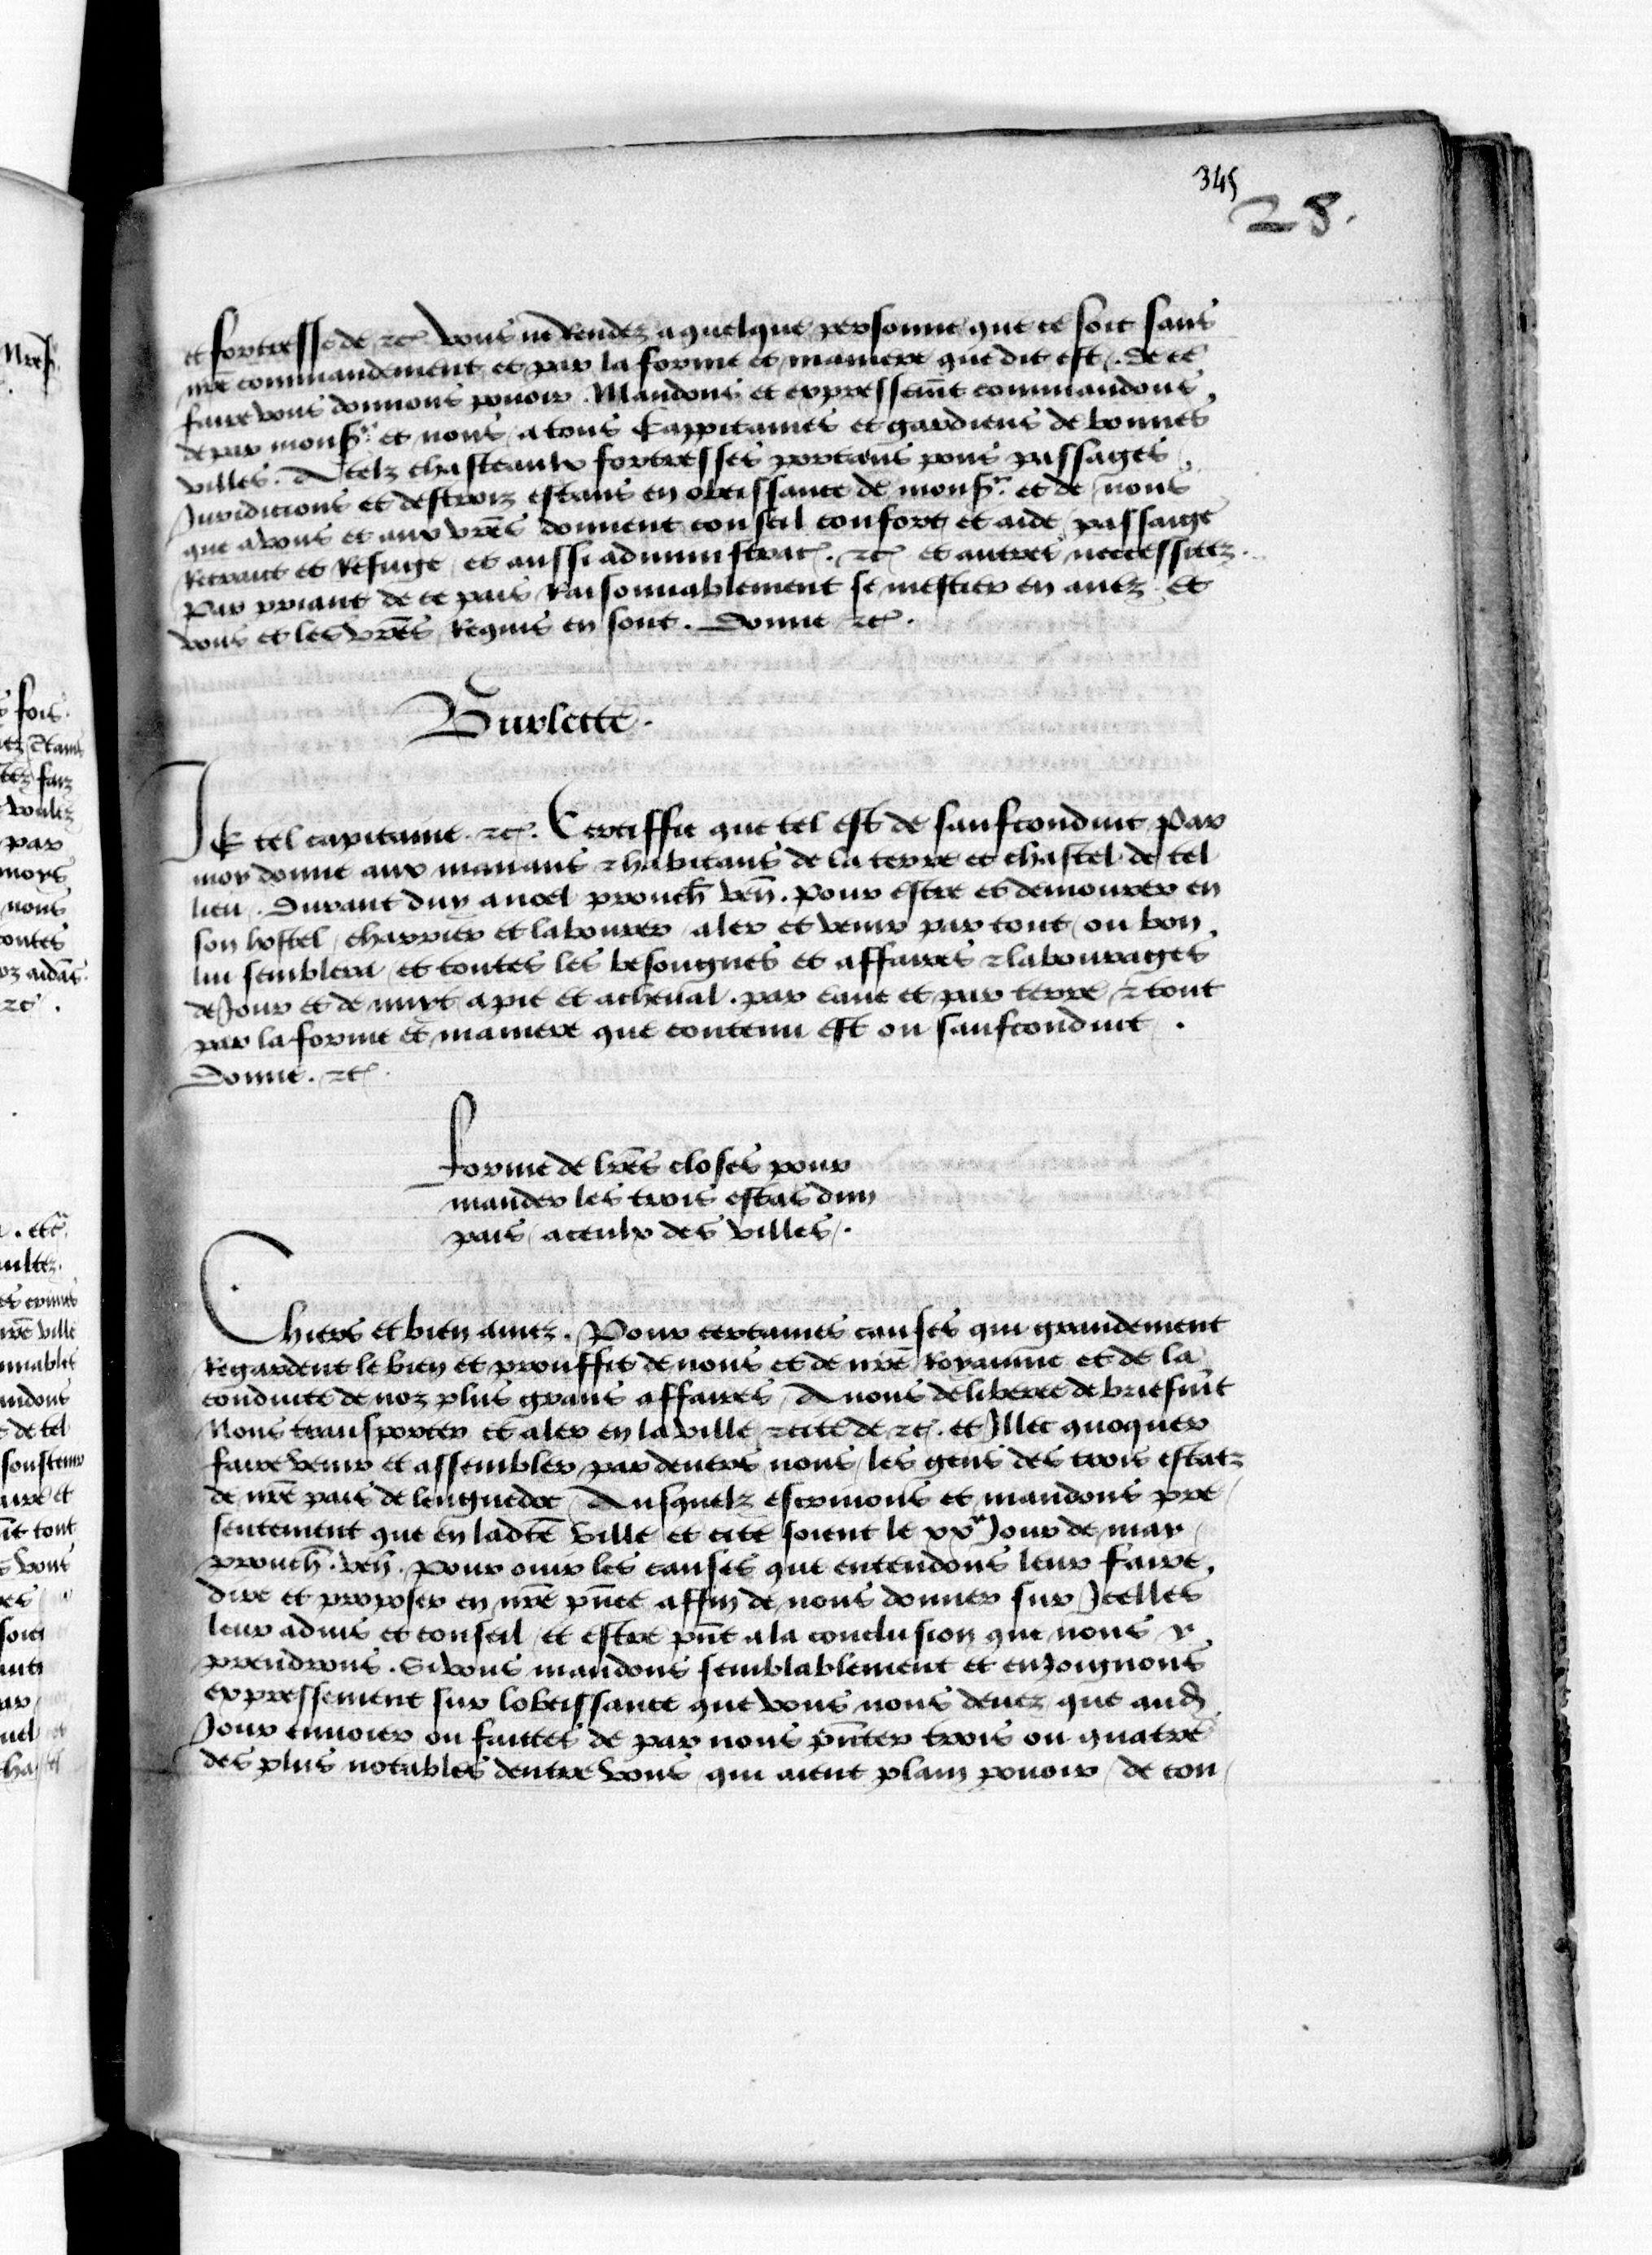 345
28.
et fortresse de etc. vous ne Rendez a quelque personne que ce soit sans
nre commandement et par la forme et maniere que dit est. De ce
faire vous donnons pouoir. Mandons et expressemt commandons
de par monsr. et nous a tous Cappitaines et gardiens de bonnes
villes. chasteaulx fortresses pors pons passages
Juridicions et destroiz estans en obeissance de monsr. et de nous
que a vous et aux vres donnent conseil confort et aide passaige
Retrait et Refuge et aussi administrac. etc. et autres neccessitez.
Par priant de ce pais Raisonnablement se mestier en auez Et
vous et les vres Requis en sont. Donne etc.
Burlette.
Je tel capitaine etc. Certiffie que tel est de saufconduit Par
moy donne aux manans et habitans de la terre et chastel de tel
lieu. Durant duy a noel prouch ven. Pour estre et demourer en
son hostel charrier et labourer aler et venir par tout ou bon
lui semblera et toutes les besongnes et affaires et labourages
de Jour et de nuyt a pie et a cheual. par eaue et par terre et tout
par la forme et maniere que contenu est ou saufconduit.
Donne. etc.
Forme de lres closes pour
mander les trois estas dun
pais a ceulx des villes.
Chiers et bien amez. Pour certaines causes qui grandement
Regardent le bien et prouffit de nous et de nre Royaume et de la
conduite de noz plus grans affaires Auons delibere de briefmt
Nous transporter et aler en la ville et cite de etc. et Illec
faire venir et assembler par deuers nous les gens des trois estatz
de nre pais de lenguedoc Ausquelz escriuons et mandons pre
sentement que en ladte ville et cite soient le xxe Jour de may
prouch. ven. Pour ouir les causes que entendons leur faire
dire et proposer en nre pnce affin de nous donner sur Icelles
leur aduis et conseil et estre pnt a la conclusion que nous y
prendrons. Si vous mandons semblablement et enJoignons
expressement sur lobeissance que vous nous deuez que aud
Jour enuoier ou faittes de par nous pnter trois ou quatre
des plus notables dentre vous qui aient plain pouoir de con